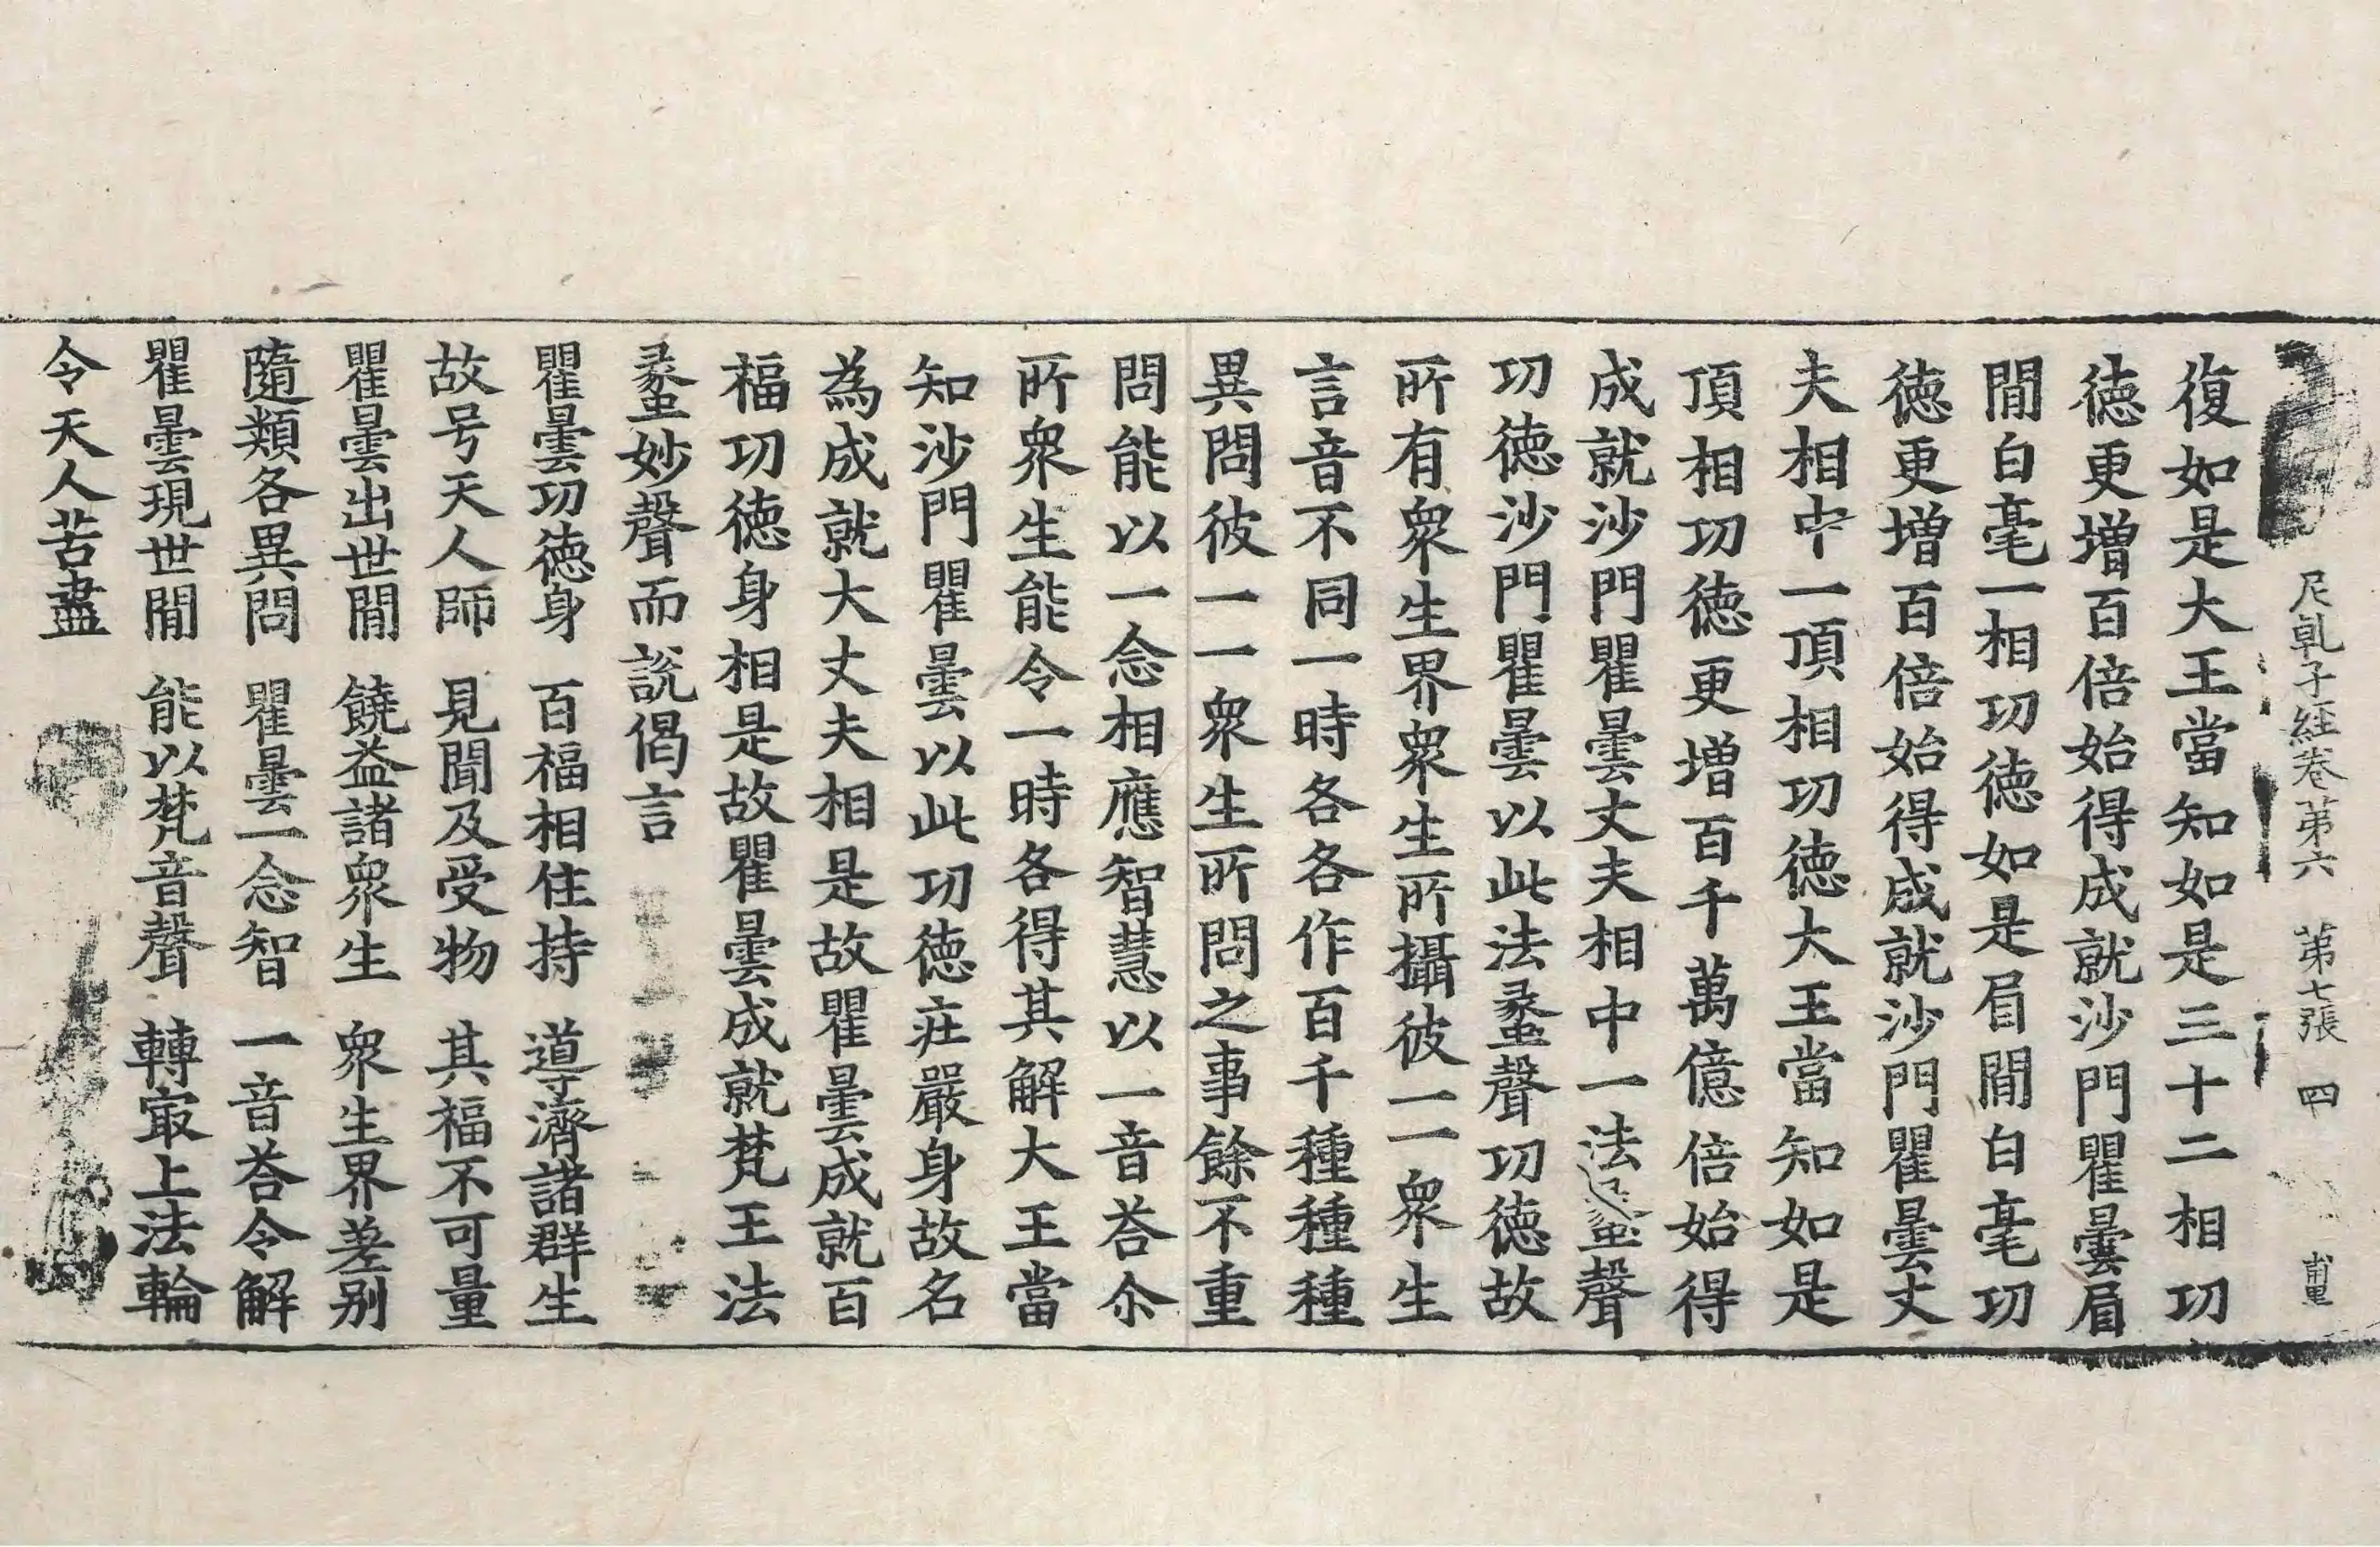 尼乹子經卷第六 第七張 四
復如是大王當知如是三十二相功
徳更増百倍始得成就沙門瞿曇眉
間白毫一相功徳如是眉間白毫功
徳更増百倍始得成就沙門瞿曇丈
夫相中一頂相功徳大王當知如是
頂相功徳更増百千萬億倍始得
成就沙門瞿曇丈夫相中一法蠡聲
功徳沙門瞿曇以此法蠡聲功徳故
所有衆生界衆生所攝彼一一衆生
言音不同一時各各作百千種種種
異問彼一一衆生所問之事餘不重
問能以一念相應智慧以一音荅尒
所衆生能令一時各得其解大王當
知沙門瞿曇以此功徳莊嚴身故名
為成就大丈夫相是故瞿曇成就百
福功徳身相是故瞿曇成就梵王法
蠡妙聲而説偈言
瞿曇功徳身 百福相住持 導濟諸群生
故号天人師 見聞及受物 其福不可量
瞿曇出世間 饒益諸衆生 衆生界差别
隨類各異問 瞿曇一念智 一音荅令解
瞿曇現世間 能以梵音聲 轉㝡上法輪
令天人苦盡